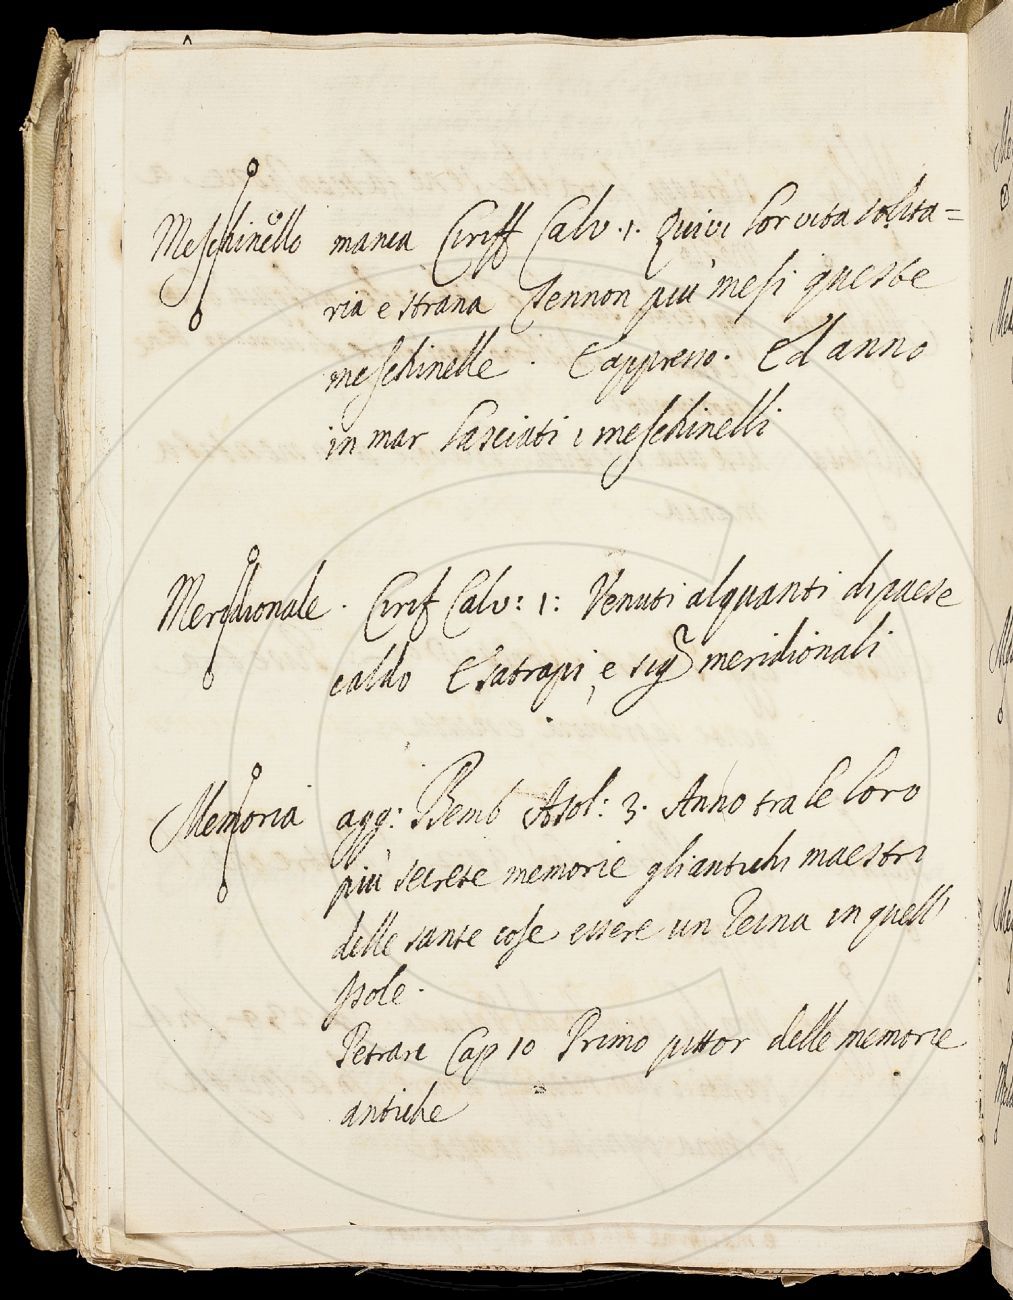 Meschinello manca Ciriff Calv. 1. Quivi lor vita solita=
ria e strana Sennon più mesi queste
meschinelle. E appresso. Ed anno
in mar lasciati i meschinelli
Meridionale. Cirif Calv: 1: Venuti alquanti di paese
caldo E satrapi, e sig.ri meridionali
Memoria agg: Bemb Asol: 3. Anno tra le loro
più secrete memorie gli antichi maestri
delle sante cose essere un Reina in quell'
Isole.
Petrarc Cap 10 Primo pittor delle memorie
antiche